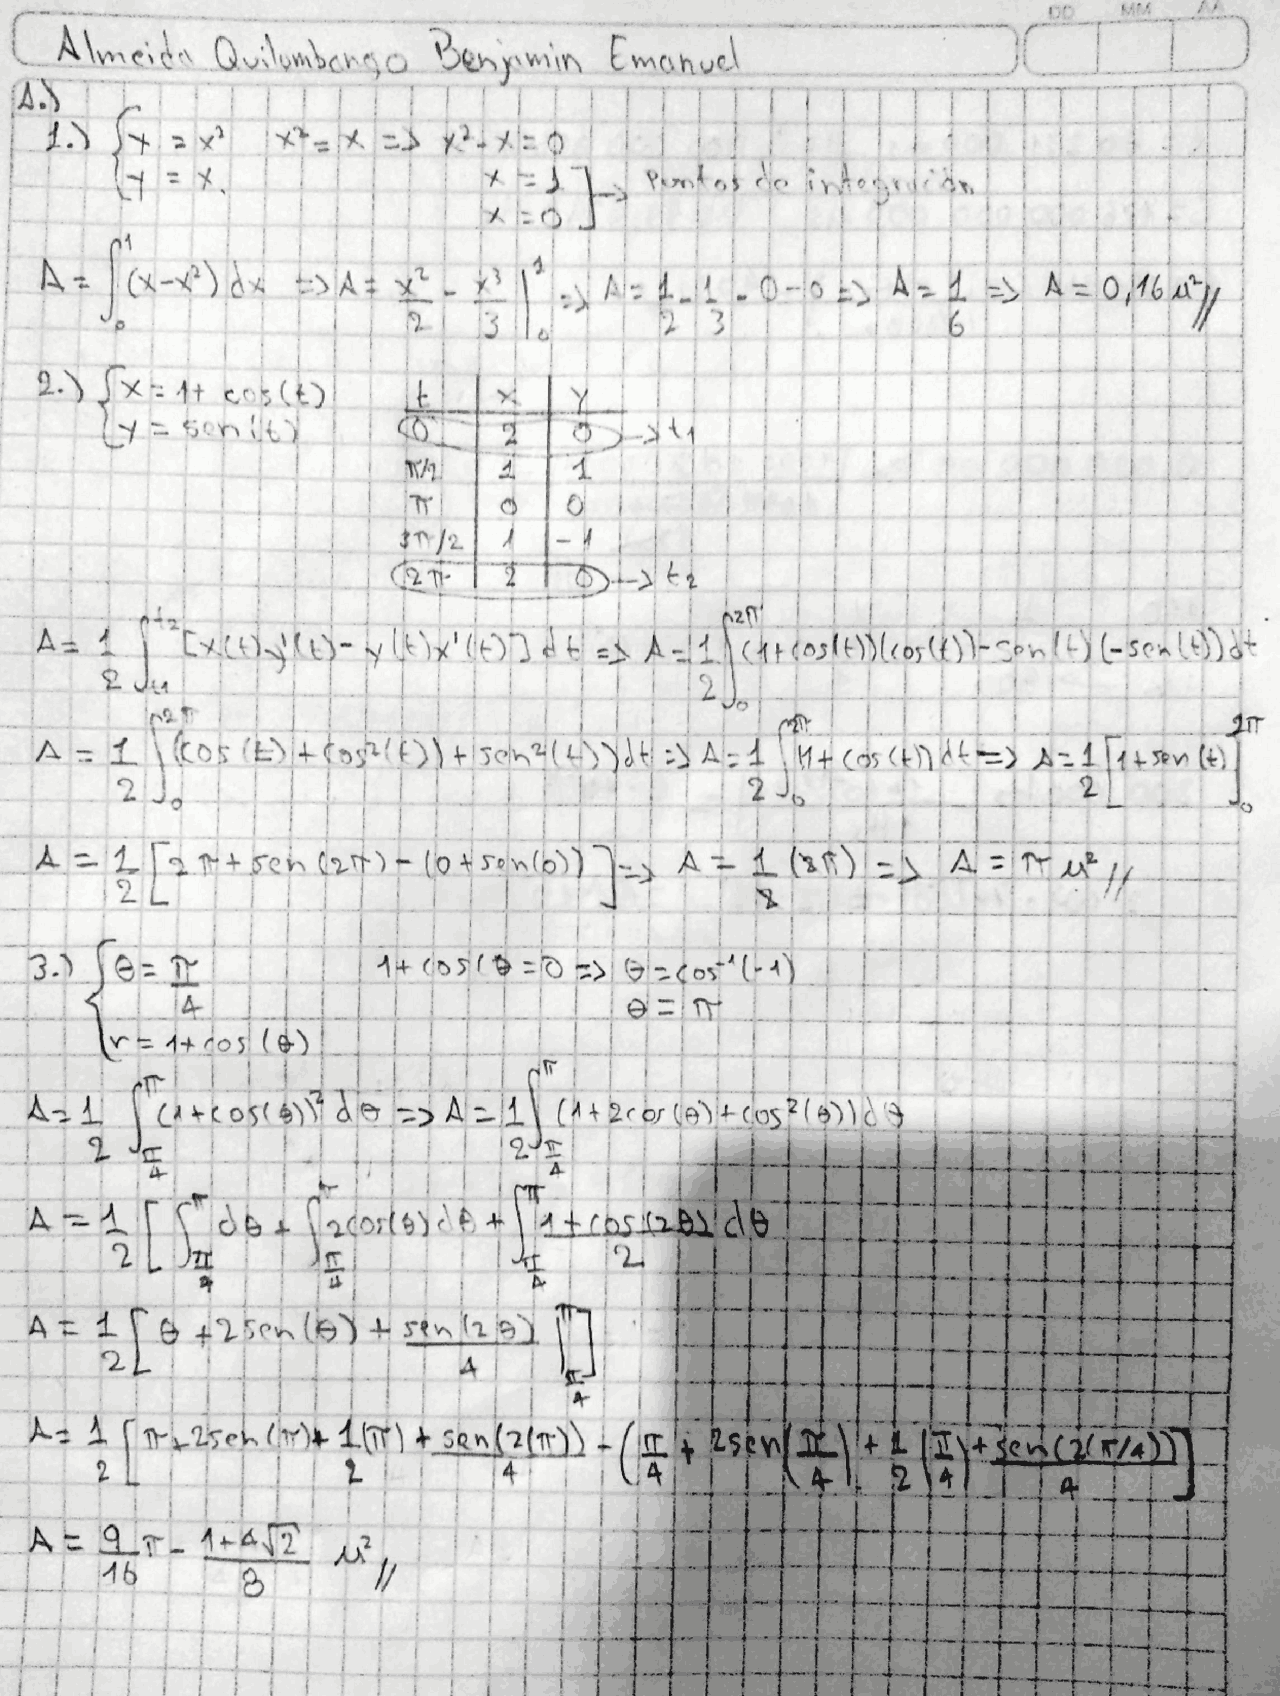 DD MM AA
Almeida Quilumbango Benjamin Emanuel
A.)
1.) { y = x² x² = x => x² - x = 0
y = x. x = 1 ] -> Puntos de integración
x = 0
A = ∫₀¹ (x-x²) dx => A = x²/2 - x³/3 |₀¹ => A = 1/2 - 1/3 - 0 - 0 => A = 1/6 => A = 0,16 u² //
2.) { x = 1+ cos(t) t | x | y
y = sen(t) 0 | 2 | 0 -> t₁
π/2 | 1 | 1
π | 0 | 0
3π/2 | 1 | -1
2π | 2 | 0 -> t₂
A = 1/2 ∫_{t₁}^{t₂} [x(t)y'(t) - y(t)x'(t)] dt => A = 1/2 ∫₀^{2π} (1+cos(t))(cos(t)) - sen(t)(-sen(t)) dt
A = 1/2 ∫₀^{2π} (cos(t) + cos²(t)) + sen²(t)) dt => A = 1/2 ∫₀^{2π} (1 + cos(t)) dt => A = 1/2 [1 + sen(t)]₀^{2π}
A = 1/2 [2π + sen(2π) - (0 + sen(0))] => A = 1/2 (2π) => A = π u² //
3.) { θ = π/4 1 + cos(θ = 0 => θ = cos⁻¹(-1)
θ = π
r = 1 + cos(θ)
A = 1/2 ∫_{π/4}^{π} (1+cos(θ))² dθ => A = 1/2 ∫_{π/4}^{π} (1+2cos(θ) + cos²(θ)) dθ
A = 1/2 [ ∫_{π/4}^{π} dθ + ∫_{π/4}^{π} 2cos(θ) dθ + ∫_{π/4}^{π} (1+cos(2θ))/2 dθ
A = 1/2 [ θ + 2sen(θ) + sen(2θ)/4 |_{π/4}^{π} ]
A = 1/2 [ π + 2sen(π) + 1/2(π) + sen(2(π))/4 - (π/4 + 2sen(π/4) + 1/2(π/4) + sen(2(π/4))/4 ]
A = 9/16 π - (1+4√2)/8 u² //